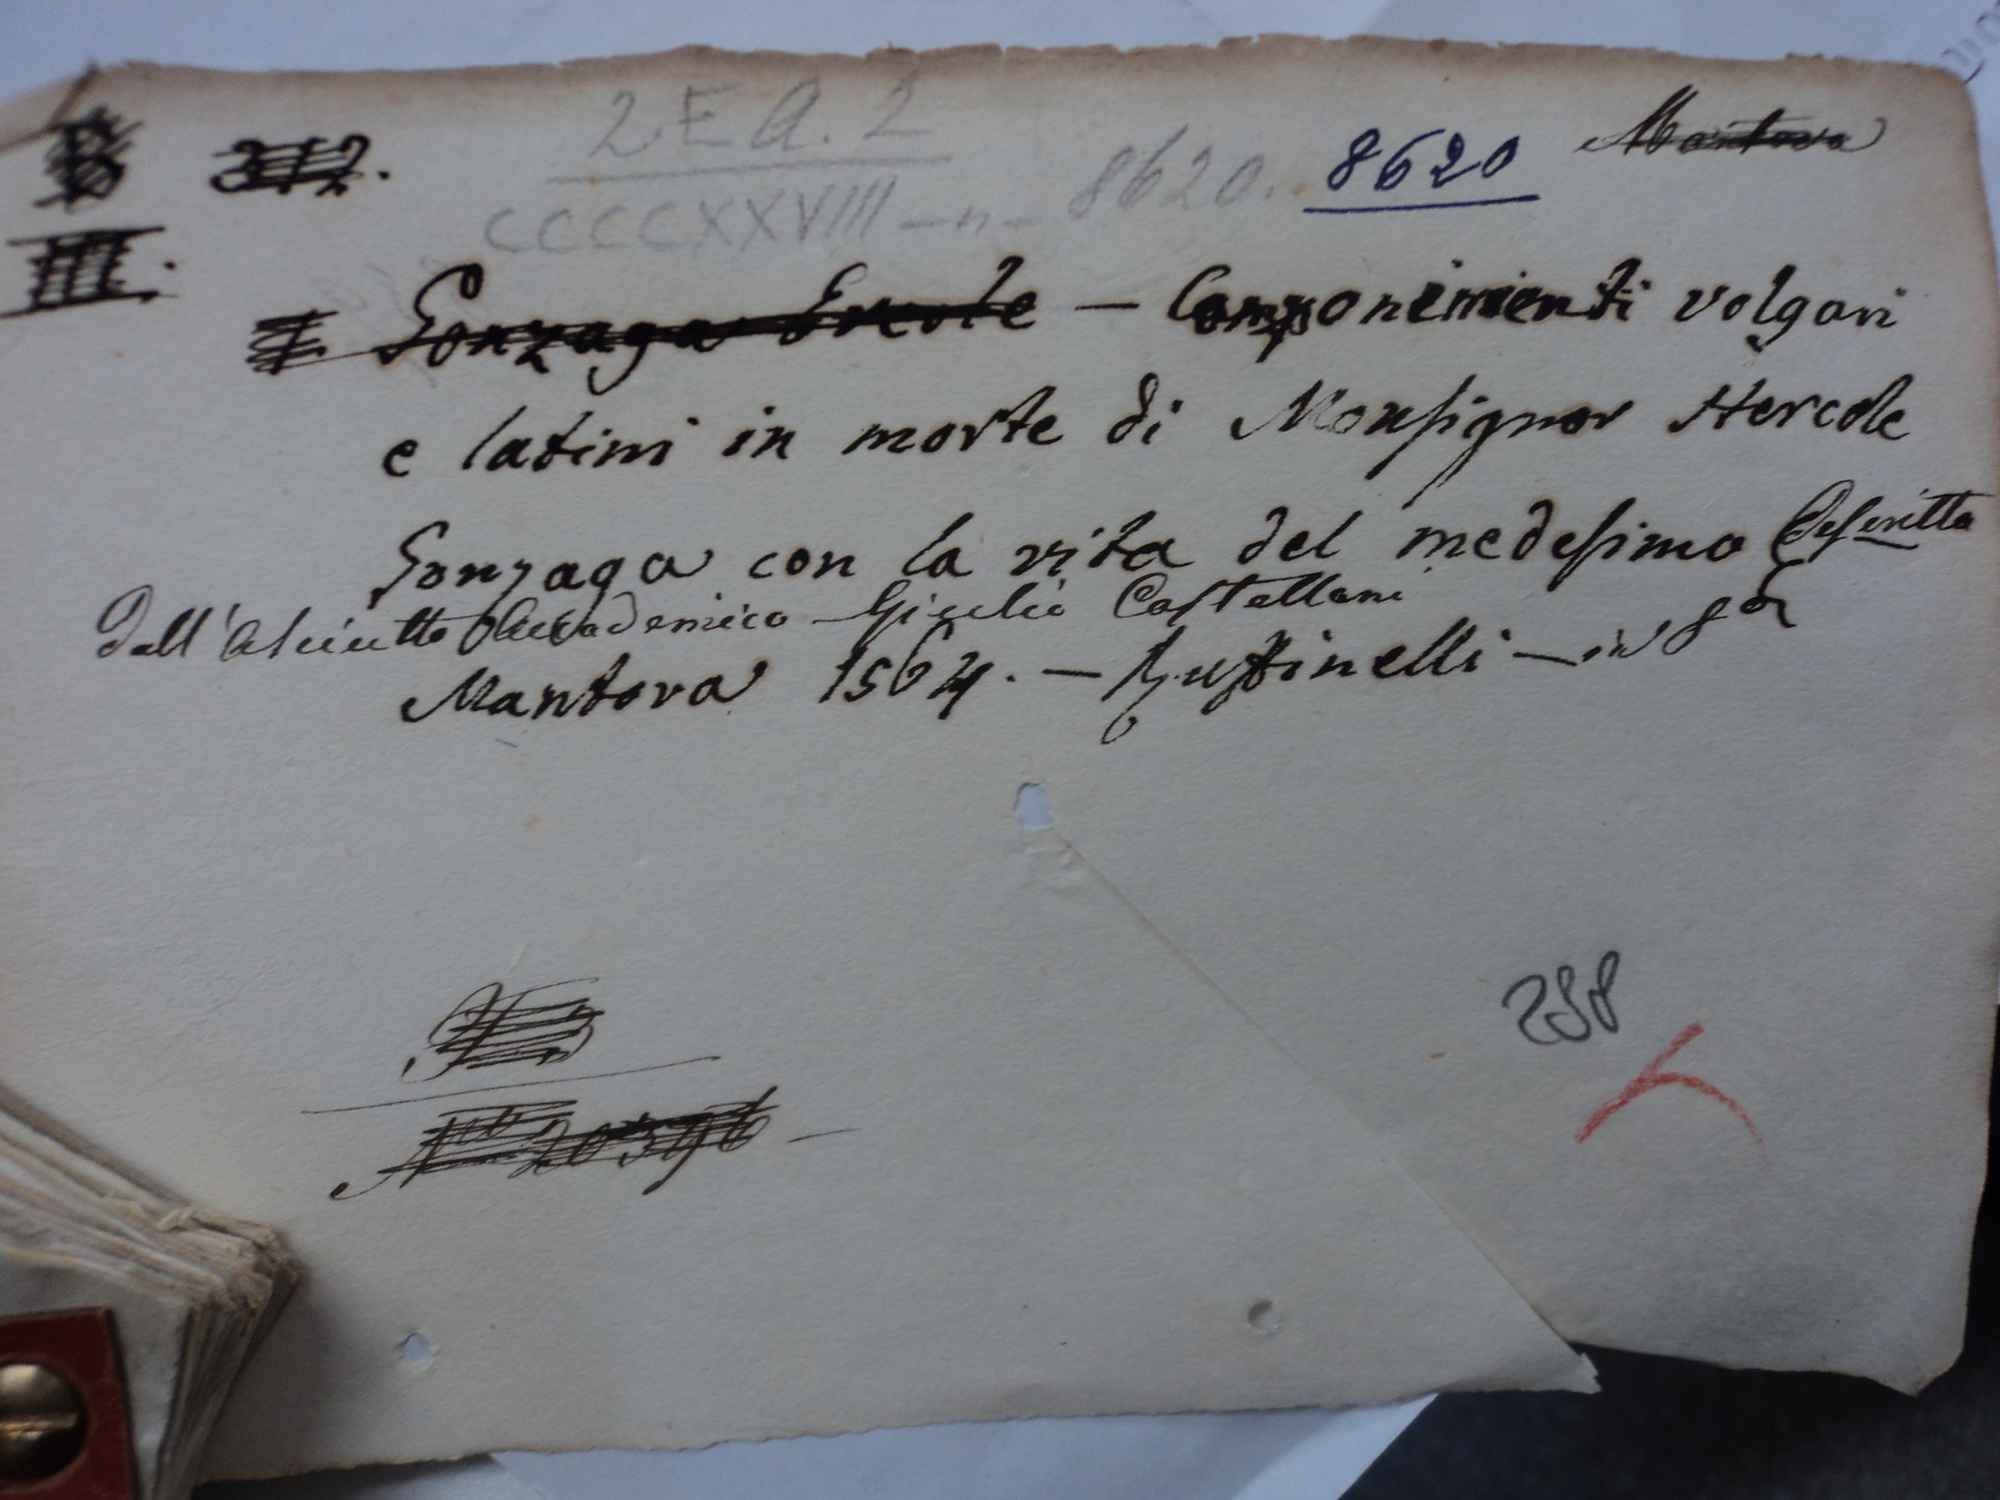 B 312. 2 E A. 2 Mantova
III. CCCCXXVIII - n - 8620. 8620
Gonzaga Ercole - Componimenti volgari
e latini in morte di Monsignor Hercole
Gonzaga con la vita del medesimo descritta
dall' Asciutto Accademico Giulio Castellani
Mantova 1564. - Ruffinelli - in 8°
20396
288